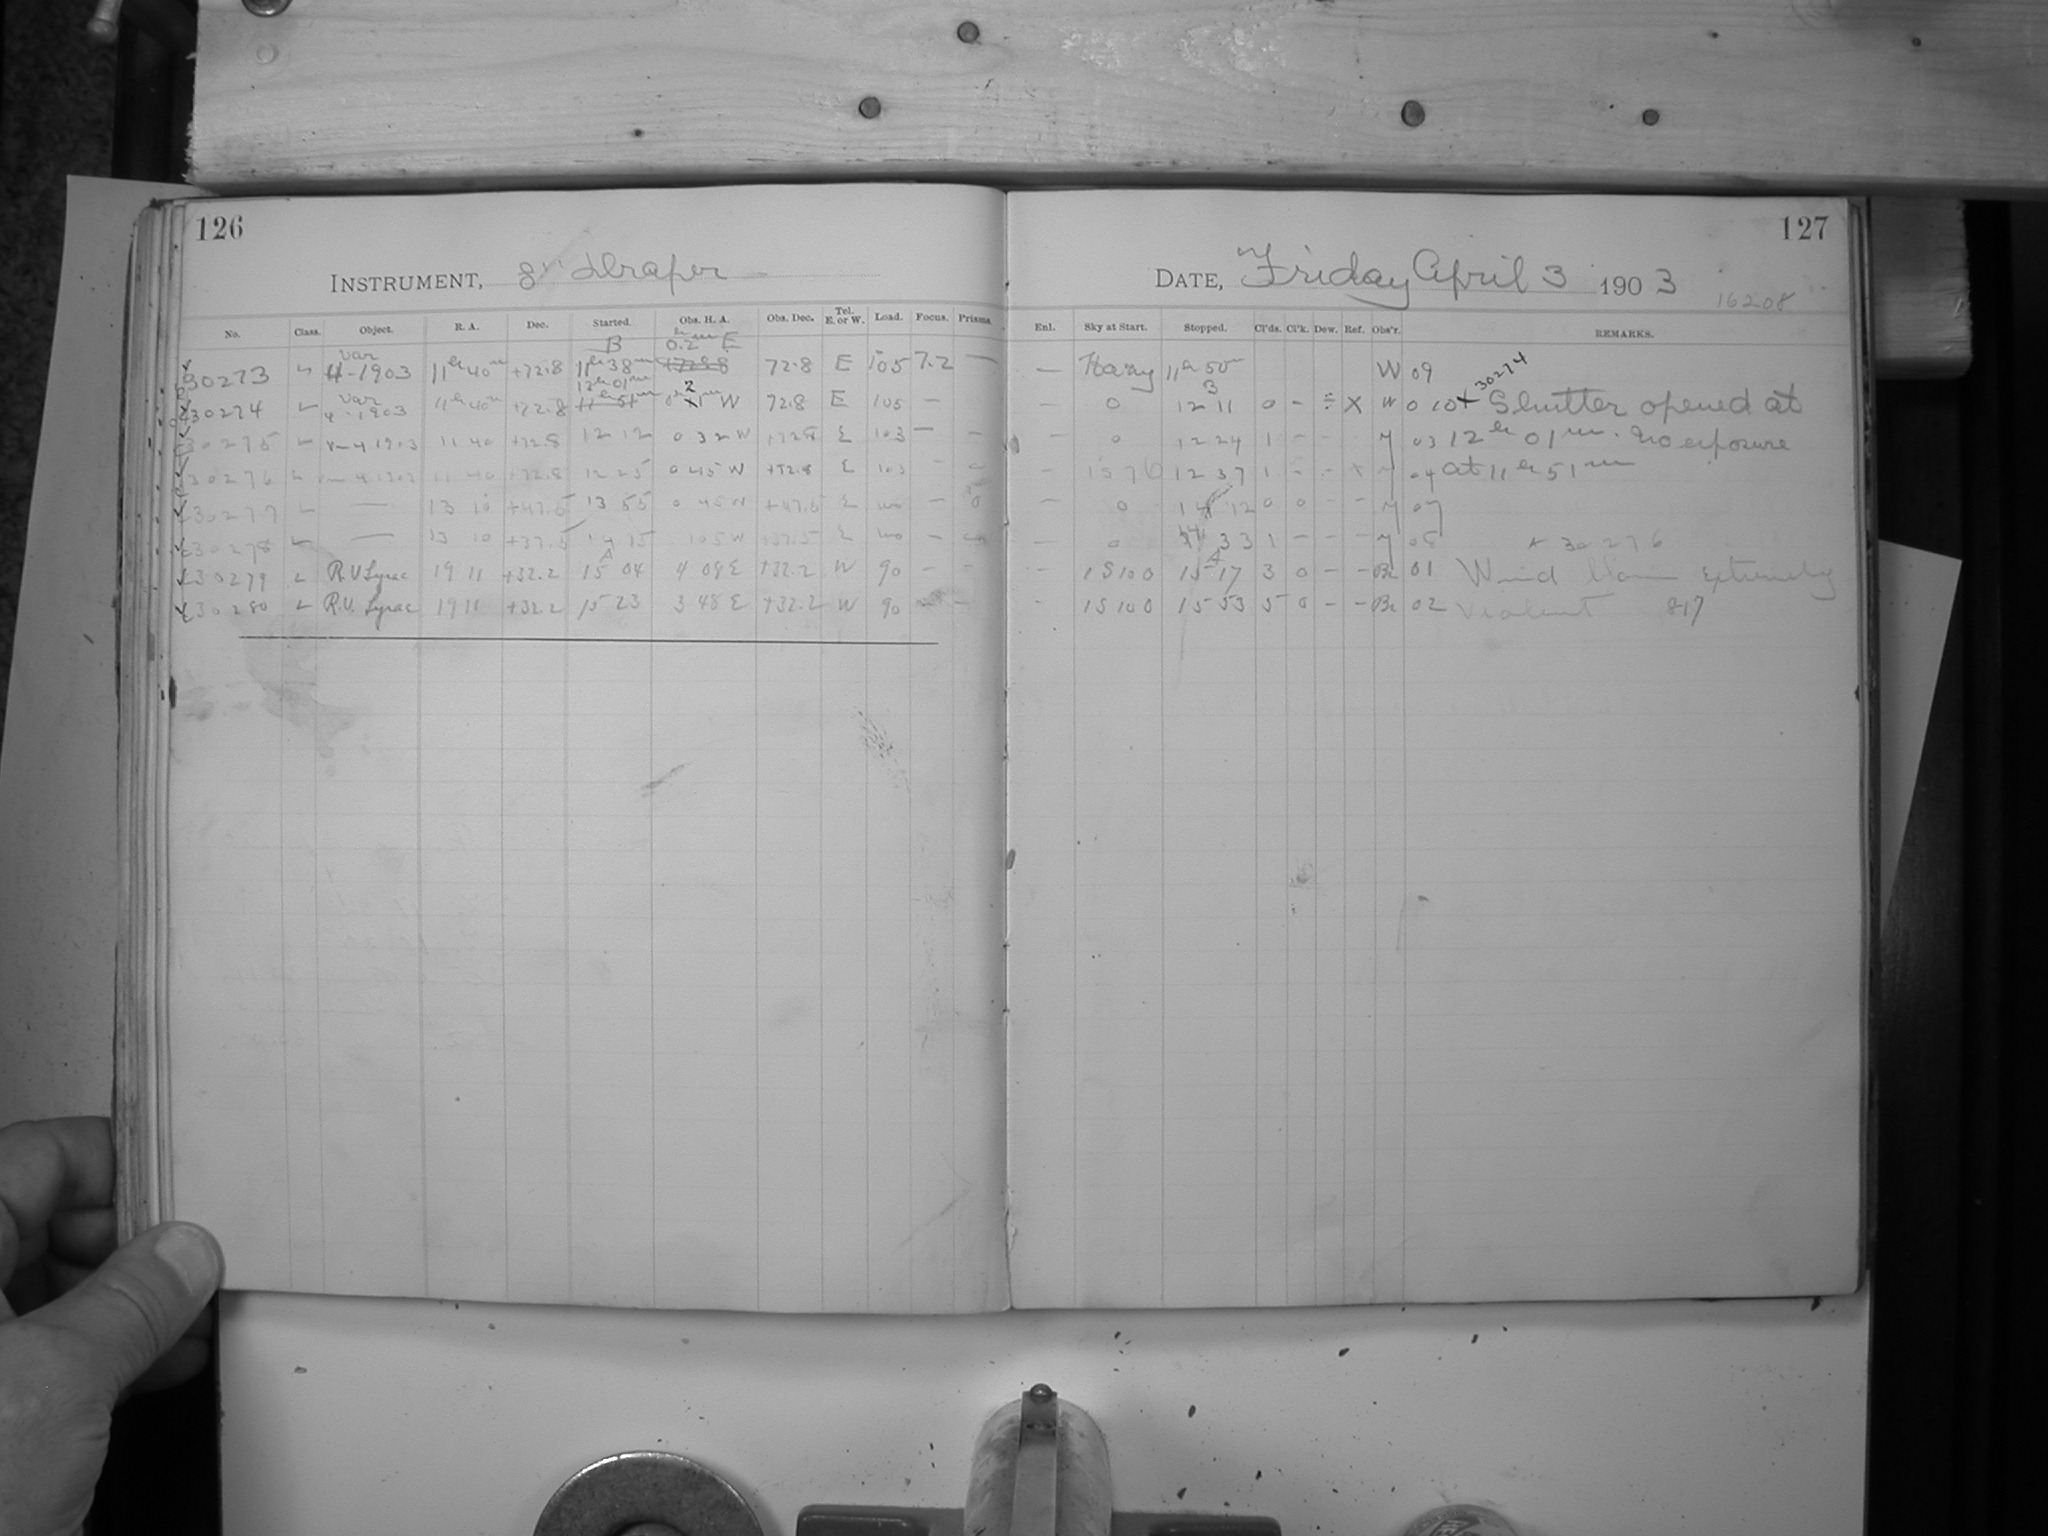 126
127
INSTRUMENT, 8" Draper
DATE, Friday April 3 1903
16208
No. Class. Object. R. A. Dec. Started. Obs. H. A. Obs. Dec. Tel. E. or W. Load. Focus. Prisms.
Enl. Sky at Start. Stopped. Cl'ds. Cl'k. Dew. Ref. Obs'r. REMARKS.
30273 L Var 4-1903 11h 40m +72.8 11h 38m 0.2m E 72.8 E 105 7.2 —
— Hazy 11h 50m W 09
30274 L Var 4-1903 11h 40m +72.8 12h 01m W 72.8 E 105 —
— 0 12 11 0 - X W 010 + 30274 Shutter opened at
30275 L 4 1903 11 40 +72.8 12 12 0 32 W +72.8 E 103 — —
— 0 12 24 1 - - 03 12h 01m. No exposure
30276 L 4 1903 11 40 +72.8 12 25 0 45 W +72.8 E 103 -
— 12 37 1 - - 04 at 11h 51m
30277 L — 13 10 +47.5 13 55 0 45 W +47.5 E —
— 0 14 12 0 0 - - 07
30278 L — 13 10 +37.5 14 15 1 05 W +37.5 E —
- 0 14 33 1 - - - 30276
30279 L R.V. Lyrae 19 11 +32.2 15 04 4 08 E +32.2 W 90 - -
- 1S100 15 17 3 0 - - Br 01 Wind extremely
30280 L R.V. Lyrae 19 11 +32.2 15 23 3 48 E +32.2 W 90 - —
- 1S100 15 53 5 0 - - Br 02 violent 817